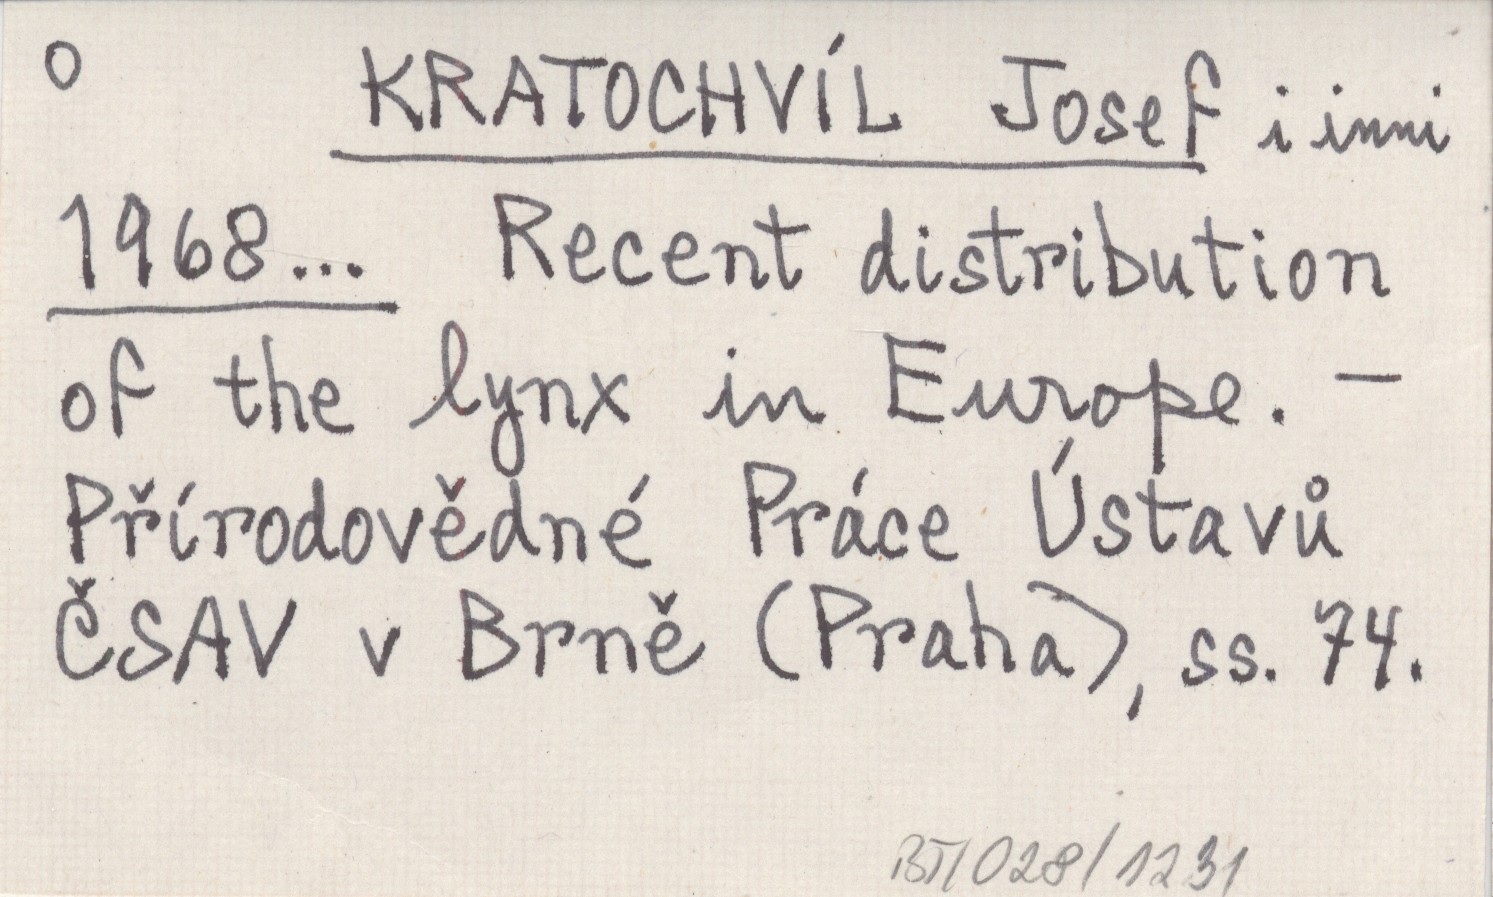 O KRATOCHVÍL Josef i inni
1968... Recent distribution
of the lynx in Europe. —
Přírodovědné Práce Ústavů
ČSAV v Brně (Praha), ss. 74.
BT/028/1231